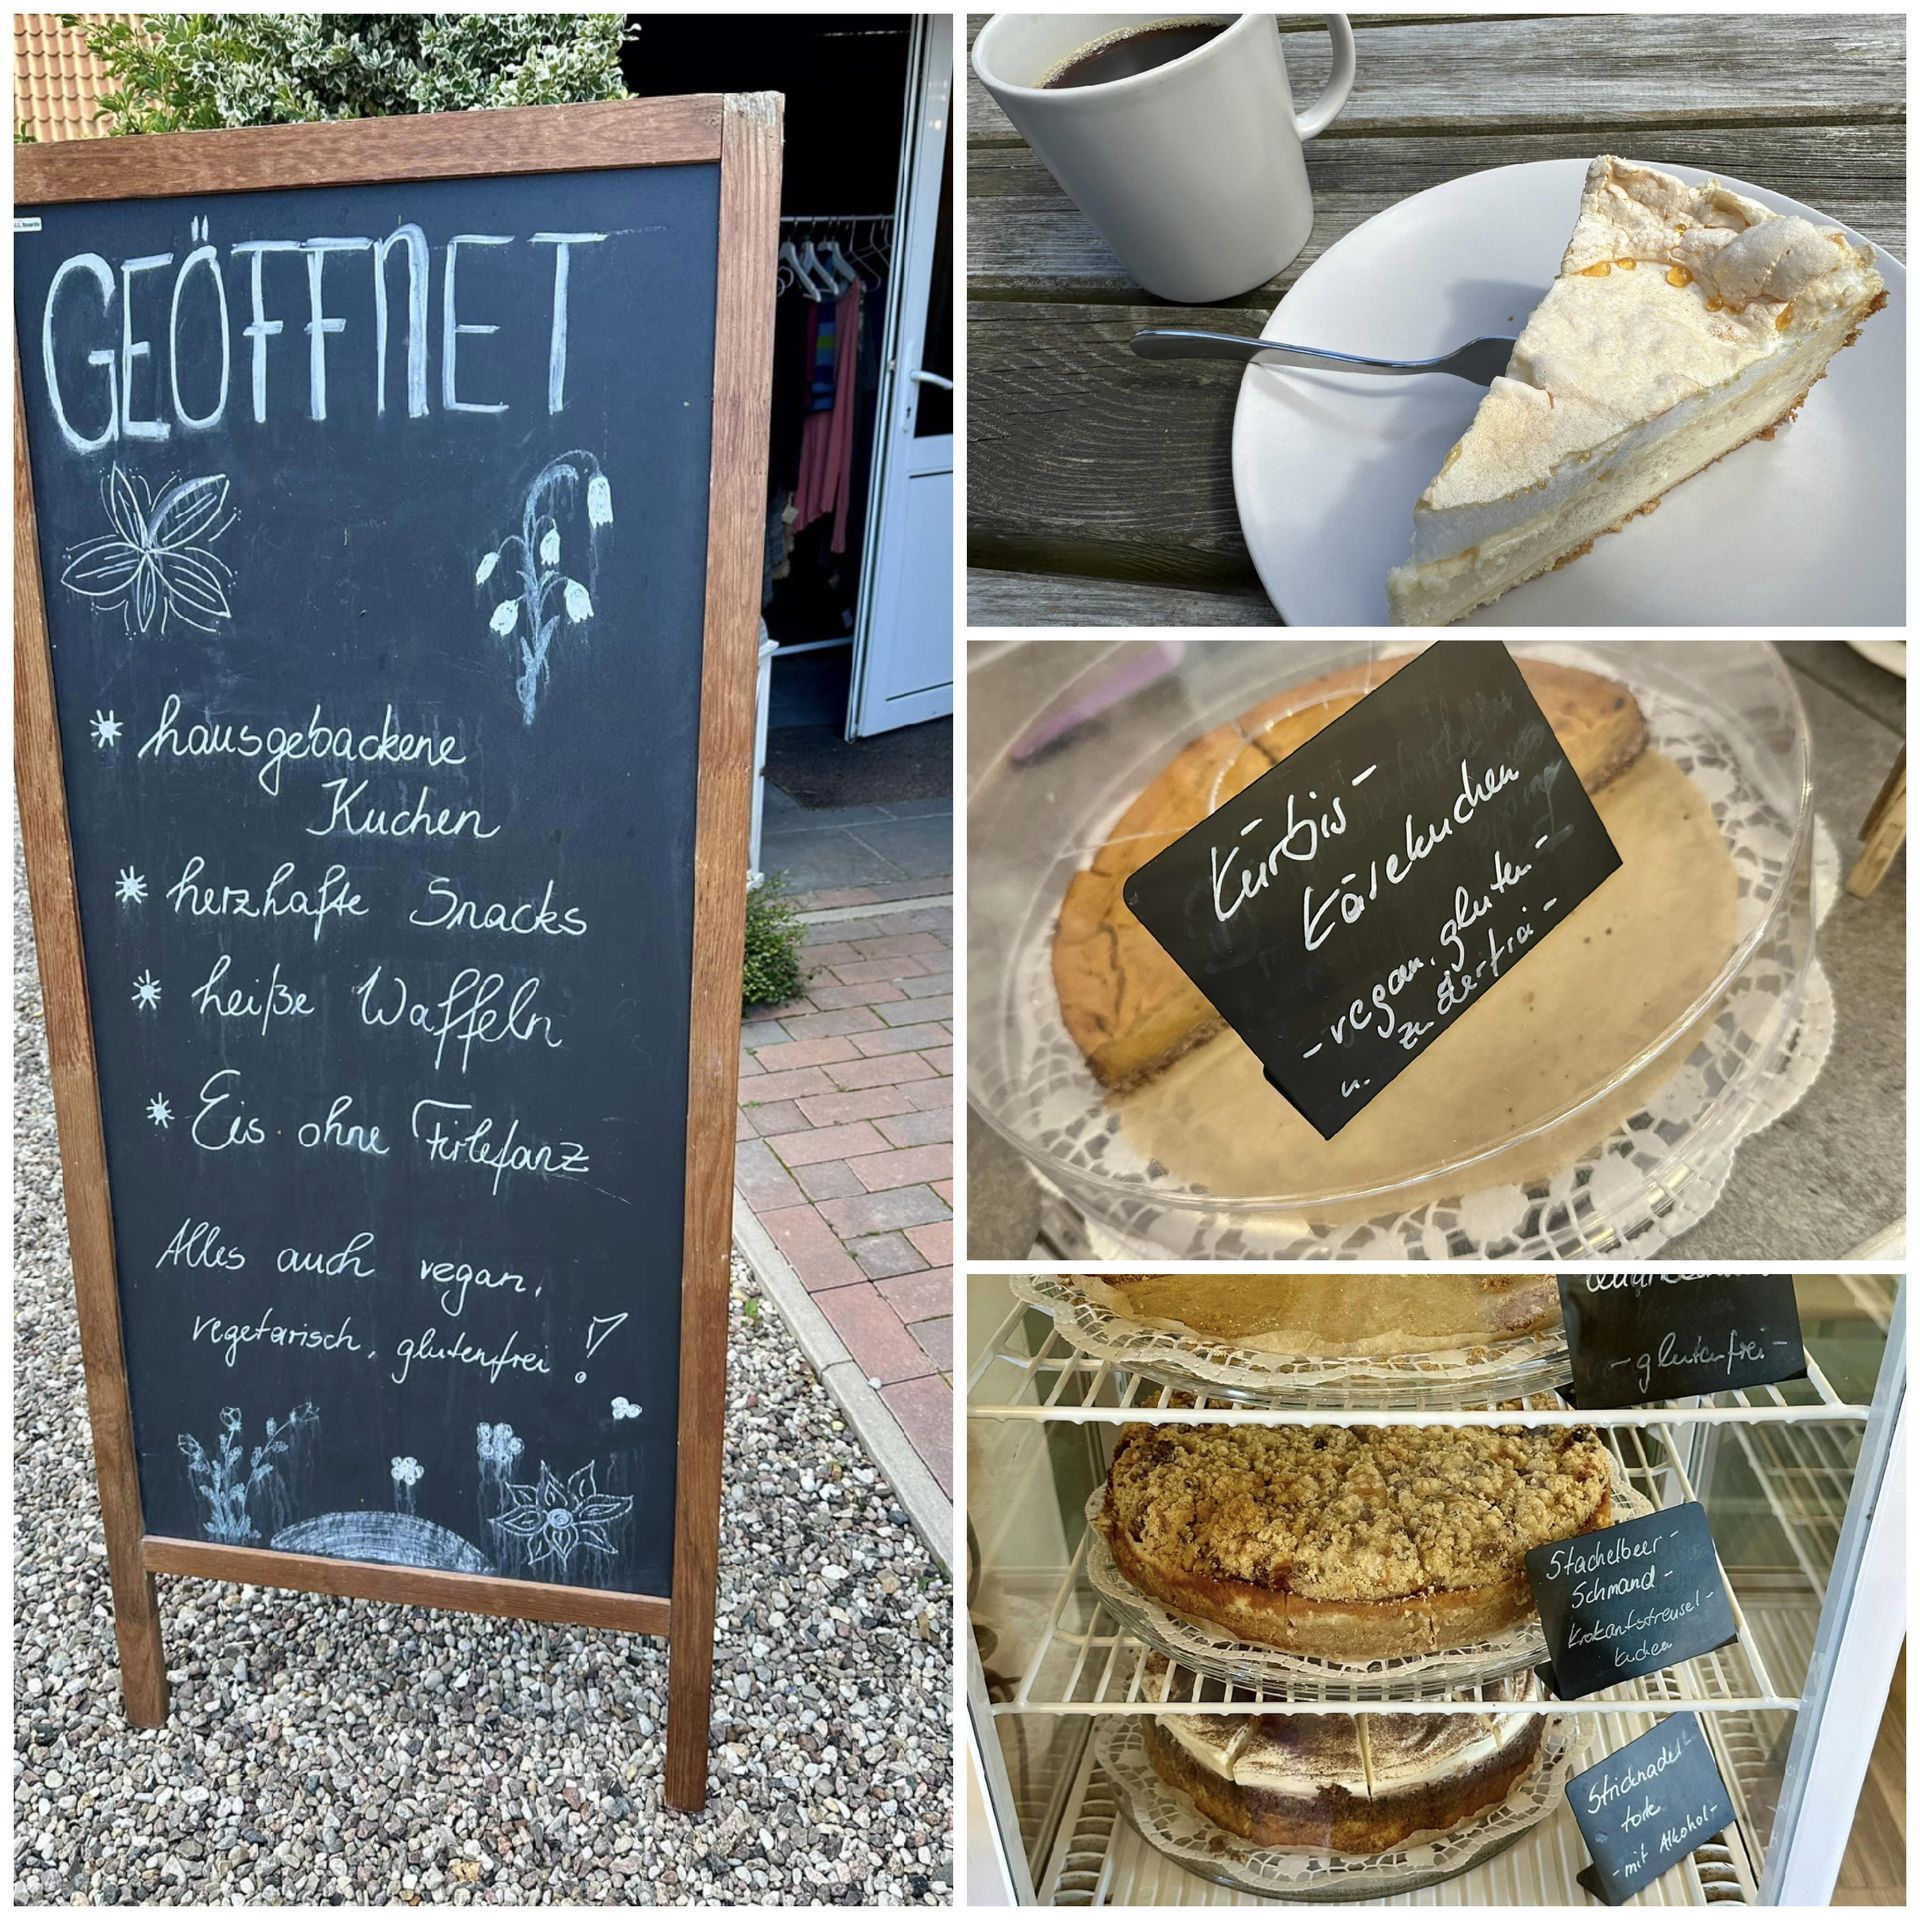 GEÖFFNET
hausgebackene
Kuchen
herzhafte Snacks
heiße Waffeln
Eis ohne Firlefanz
Alles auch vegan,
vegetarisch, glutenfrei!
Kürbis-
Käsekuchen
- vegan, gluten-
u. zuckerfrei -
- glutenfrei -
Stachelbeer-
Schmand-
Krokantstreusel-
kuchen
Stricknadel-
torte
- mit Alkohol -